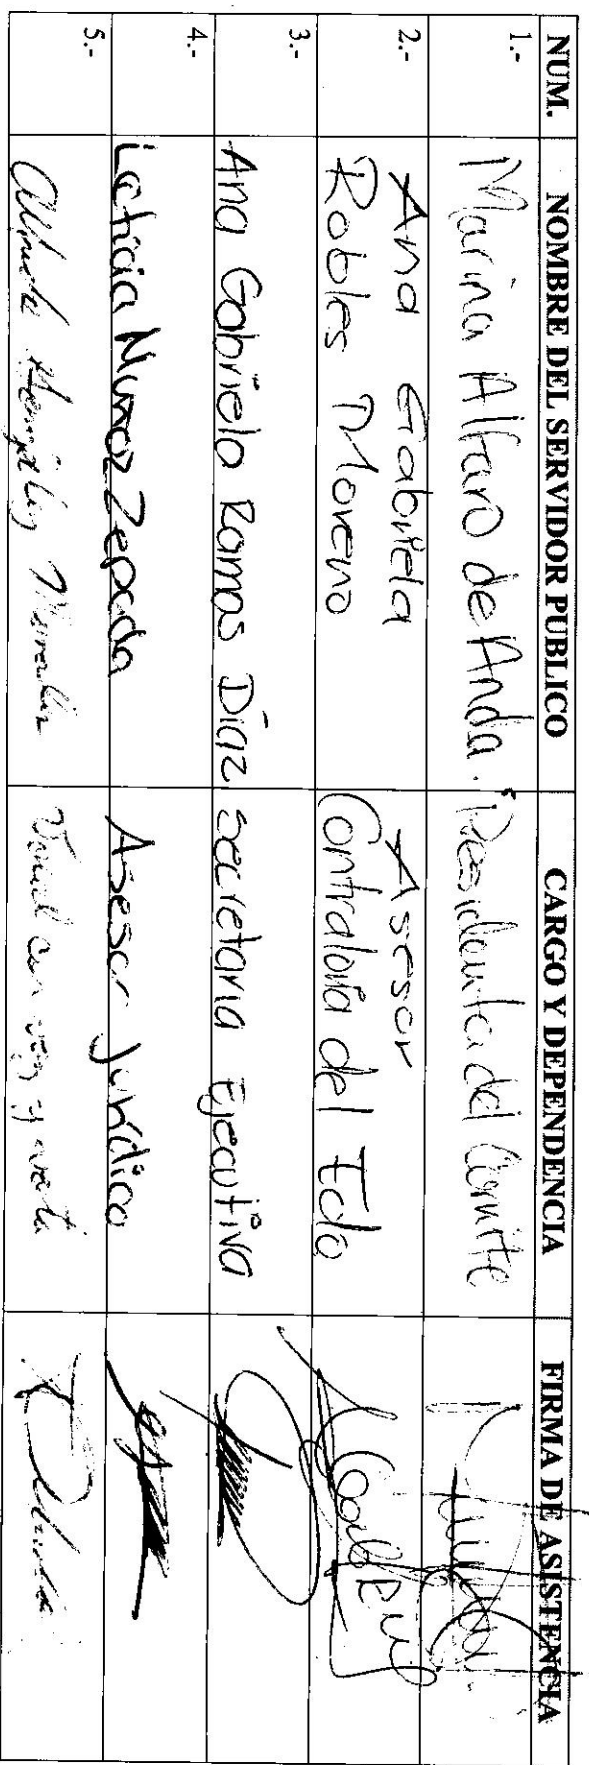 NUM. NOMBRE DEL SERVIDOR PUBLICO CARGO Y DEPENDENCIA FIRMA DE ASISTENCIA
1.- Marina Alfaro de Anda. Presidenta del Comite
2.- Ana Gabriela Asesor
Robles Moreno Contraloría del Edo
3.- Ana Gabriela Ramos Díaz Secretaria Ejecutiva
4.- Leticia Muñoz Zepeda Asesor Jurídico
5.- Vocal con voz y voto